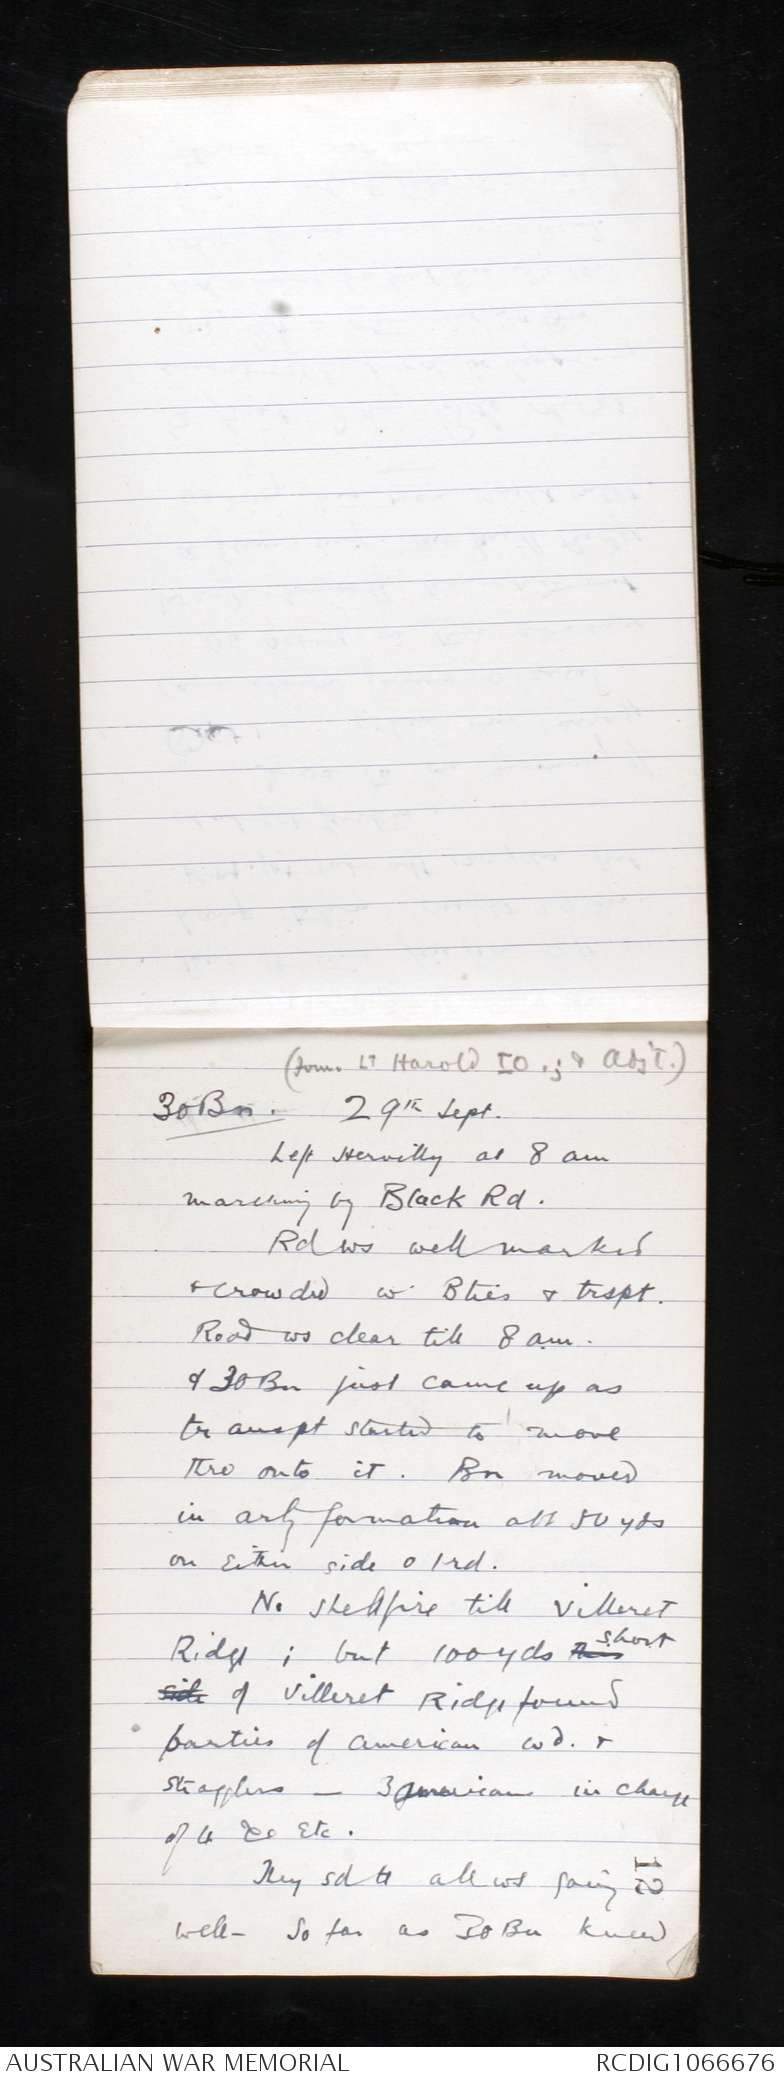 (from Lt Harold IO.; & Adj't.)
30 Bn. 29th Sept.
Left Hervilly at 8 am
marching by Black Rd.
Rd ws well marked
& crowded w' Bties & trspt.
Road ws clear till 8 am.
& 30 Bn just came up as
transpt started to move
thro onto it. Bn moved
in arty formation abt 50 yds
on either side o / rd.
No shellfire till Villeret
Ridge; but 100 yds short
side of Villeret Ridge found
parties of American wd. &
stragglers — 3 Americans in charge
of 4 etc.
They sd tt all ws going
well – So far as 30 Bn knew
12
AUSTRALIAN WAR MEMORIAL
RCDIG1066676